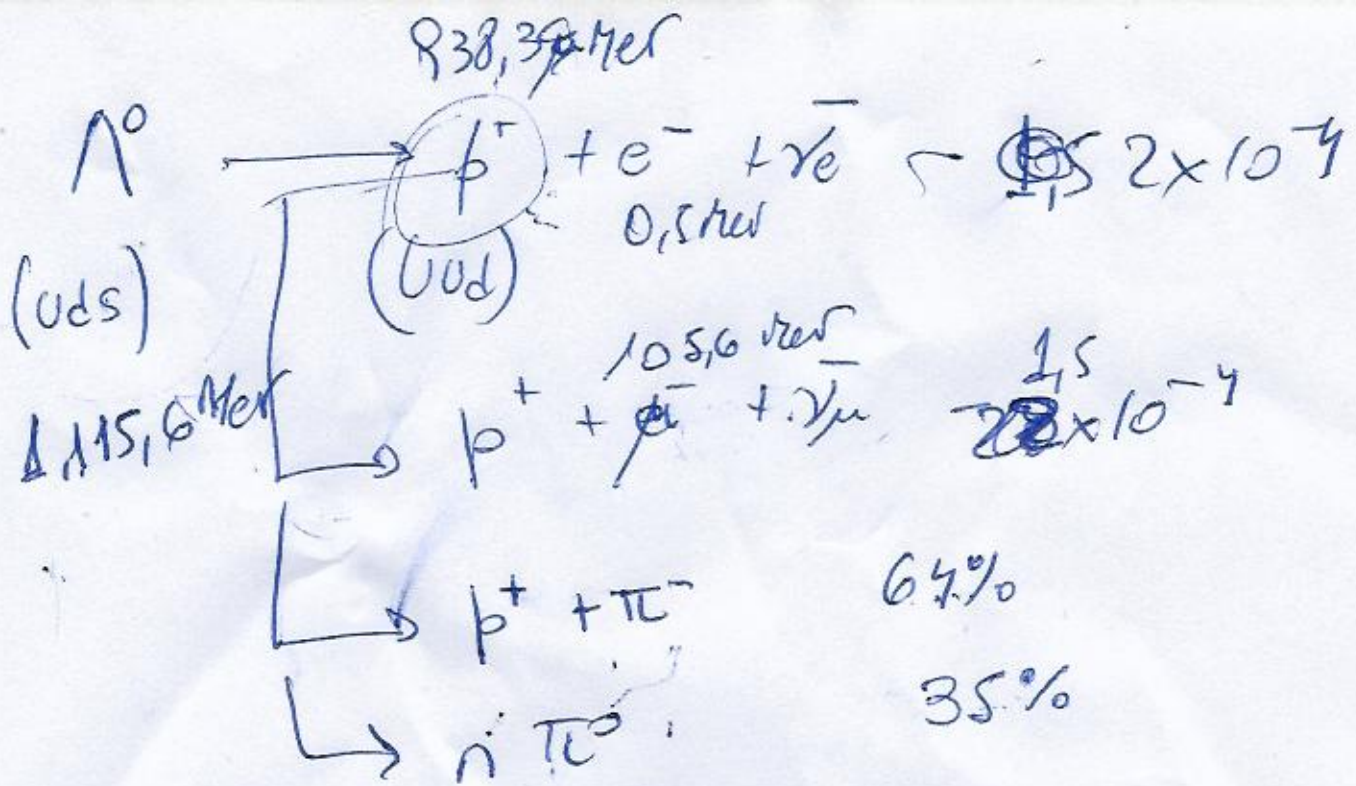 938,3 MeV
Λ⁰ → p⁺ + e⁻ + ν̄e ~ 2×10⁻⁴
0,5 MeV
(uds) (uud)
105,6 MeV
1,5
1.115,6 MeV → p⁺ + μ⁻ + ν̄μ ×10⁻⁴
→ p⁺ + π⁻ 64%
→ n π⁰ 35%